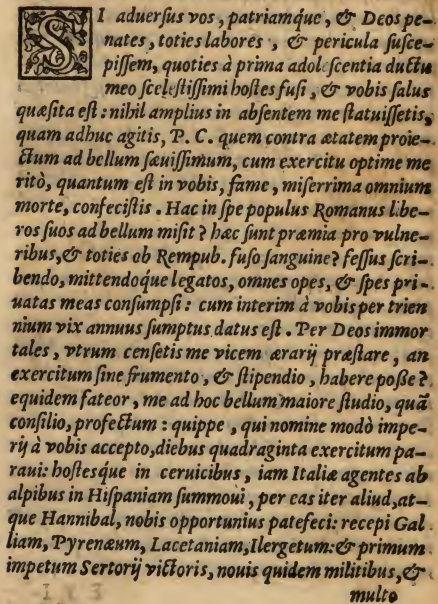 SI aduersus vos, patriamque, & Deos pe-
nates, toties labores, & pericula susce-
pissem, quoties à prima adolescentia ductu
meo scelestissimi hostes fusi, & vobis salus
quæsita est: nihil amplius in absentem me statuissetis,
quam adhuc agitis, P. C. quem contra ætatem proie-
ctum ad bellum sæuissimum, cum exercitu optime me
ritò, quantum est in vobis, fame, miserrima omnium
morte, confecistis. Hac in spe populus Romanus libe-
ros suos ad bellum misit? hæc sunt præmia pro vulne-
ribus, & toties ob Rempub. fuso sanguine? fessus scri-
bendo, mittendoque legatos, omnes opes, & spes pri-
uatas meas consumpsi: cum interim à vobis per trien
nium vix annuus sumptus datus est. Per Deos immor
tales, vtrum censetis me vicem ærarij præstare, an
exercitum sine frumento, & stipendio, habere posse?
equidem fateor, me ad hoc bellum maiore studio, quã
consilio, profectum: quippe, qui nomine modò impe-
rij à vobis accepto, diebus quadraginta exercitum pa-
raui: hostesque in ceruicibus, iam Italiæ agentes ab
alpibus in Hispaniam summoui, per eas iter aliud, at-
que Hannibal, nobis opportunius patefeci: recepi Gal
liam, Pyrenæum, Lacetaniam, Ilergetum: & primum
impetum Sertorij victoris, nouis quidem militibus, &
multo